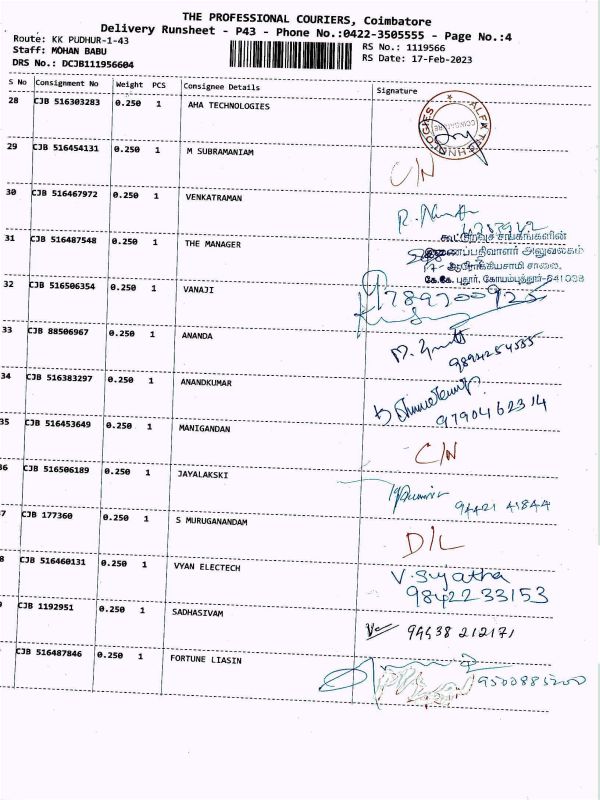 THE PROFESSIONAL COURIERS, Coimbatore
Delivery Runsheet - P43 - Phone No.:0422-3505555 - Page No.:4
Route: KK PUDHUR-1-43
RS No.: 1119566
Staff: MOHAN BABU
RS Date: 17-Feb-2023
DRS No.: DCJB111956604
S No Consignment No Weight PCS Consignee Details Signature
28 CJB 516303283 0.250 1 AHA TECHNOLOGIES
29 CJB 516454131 0.250 1 M SUBRAMANIAM C/N
30 CJB 516467972 0.250 1 VENKATRAMAN
31 CJB 516487548 0.250 1 THE MANAGER
அலுவலகம்
ஆரோக்கியசாமி சாலை,
கே.கே. புதூர், கோயம்புத்தூர்-641038
32 CJB 516506354 0.250 1 VANAJI
33 CJB 88506967 0.250 1 ANANDA
34 CJB 516383297 0.250 1 ANANDKUMAR 9790462314
35 CJB 516453649 0.250 1 MANIGANDAN C/N
36 CJB 516506189 0.250 1 JAYALAKSKI 94421 41844
7 CJB 177360 0.250 1 S MURUGANANDAM D/L
8 CJB 516460131 0.250 1 VYAN ELECTECH V. Sujatha
98422 33153
9 CJB 1192951 0.250 1 SADHASIVAM 94438 212171
CJB 516487846 0.250 1 FORTUNE LIASIN 9500885200